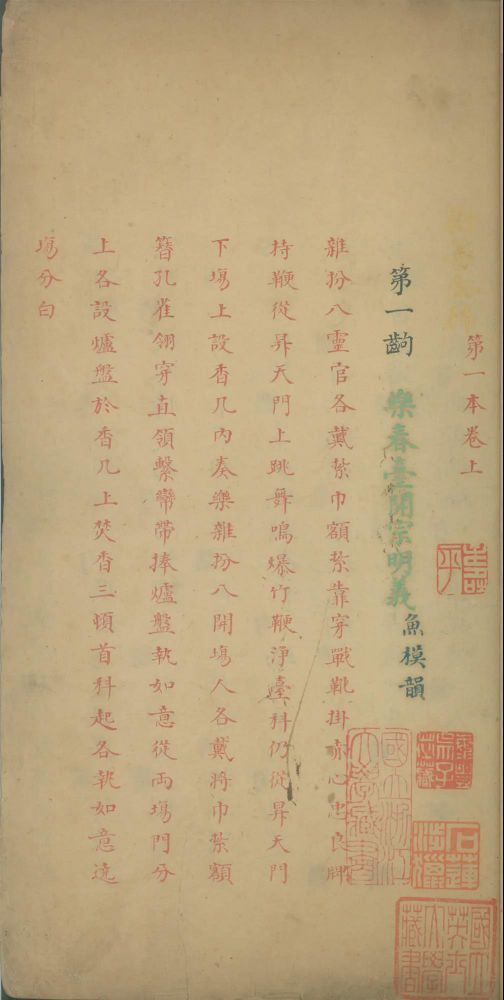 第一本卷上
第一齣 樂春臺開宗明義 魚模韻
雜扮八靈官各戴紮巾額紮靠穿戰靴掛赤心忠良牌
持鞭從昇天門上跳舞鳴爆竹鞭淨臺科仍從昇天門
下場上設香几內奏樂雜扮八開場人各戴將巾紮額
簪孔雀翎穿直領繫鸞帶捧爐盤執如意從兩場門分
上各設爐盤於香几上焚香三頓首科起各執如意遶
場分白
國立浙江大學藏書
石蓮涉獵
國立英士大學藏書